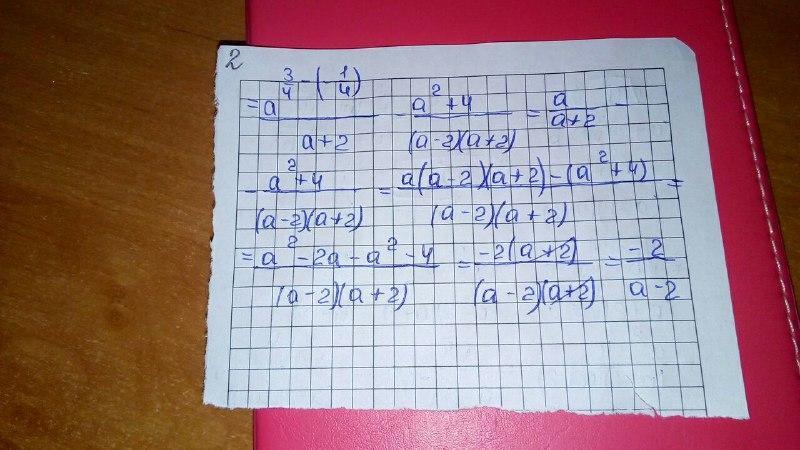 2
= a^(3/4 - (-1/4)) / (a+2) - (a²+4) / ((a-2)(a+2)) = a / (a+2) -
- (a²+4) / ((a-2)(a+2)) = (a(a-2)(a+2) - (a²+4)) / ((a-2)(a+2)) =
= (a² - 2a - a² - 4) / ((a-2)(a+2)) = -2(a+2) / ((a-2)(a+2)) = -2 / (a-2)